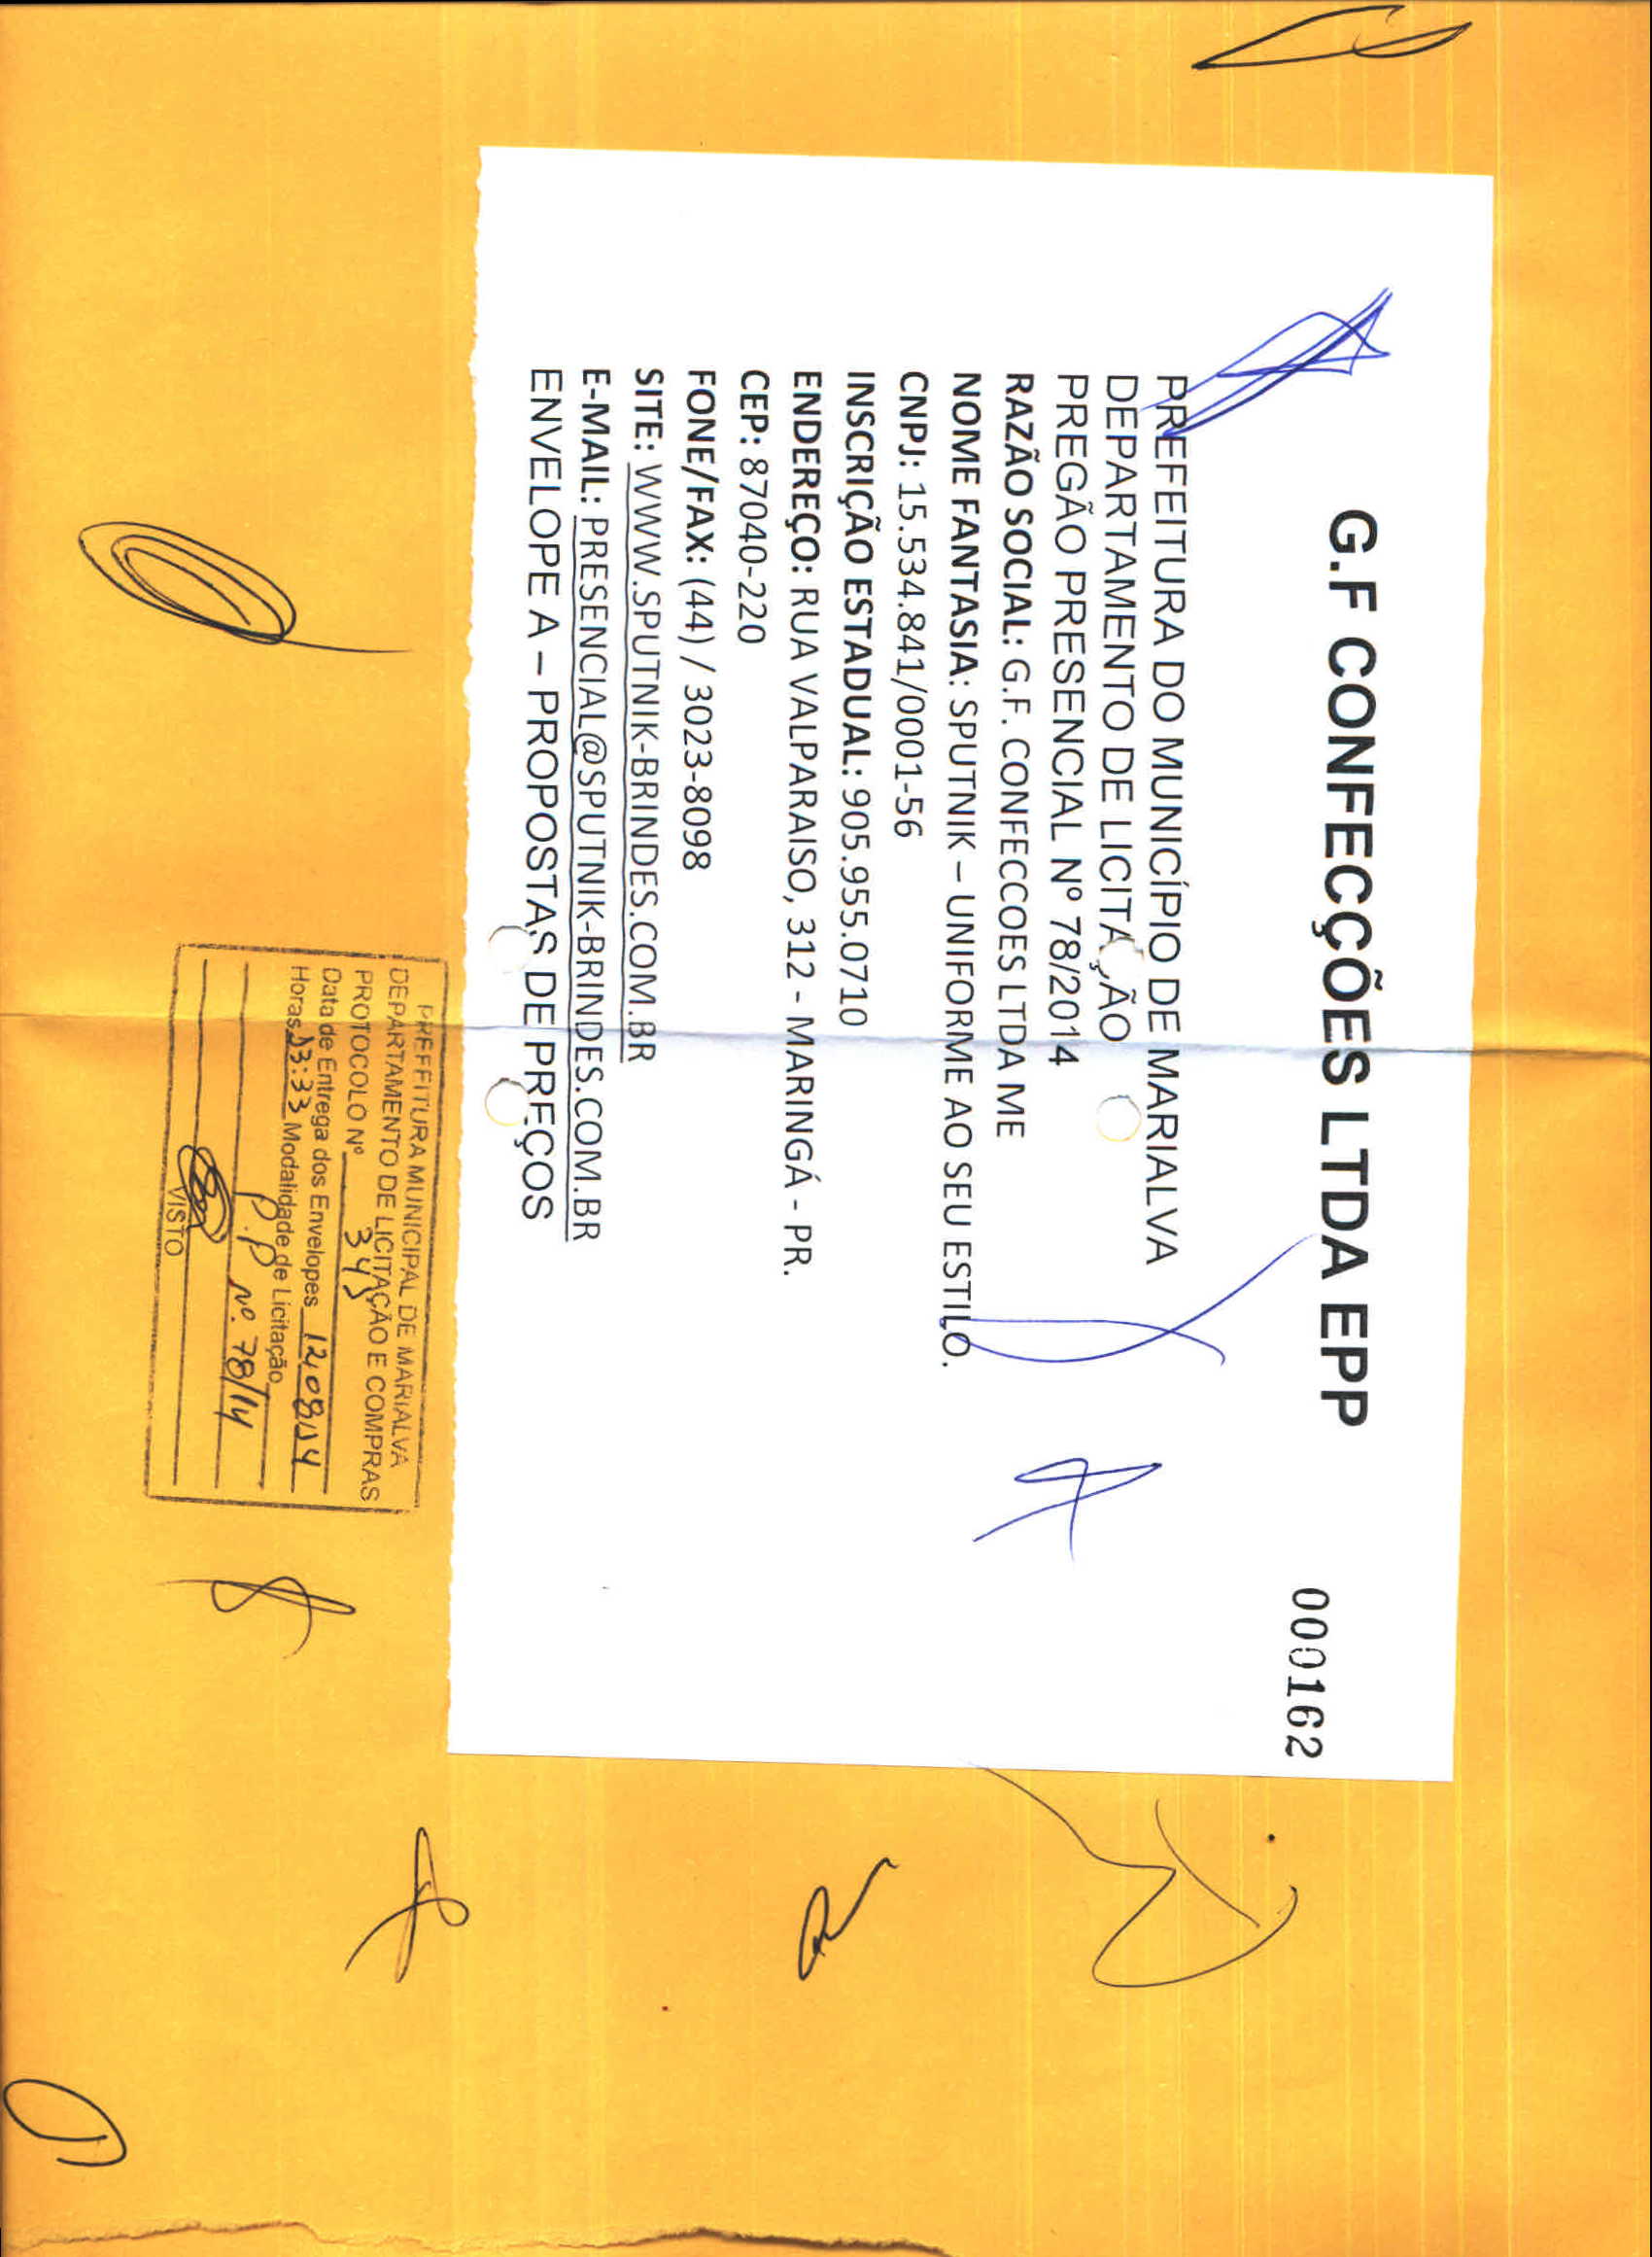 G.F CONFECÇÕES LTDA EPP
000162
PREFEITURA DO MUNICÍPIO DE MARIALVA
DEPARTAMENTO DE LICITAÇÃO
PREGÃO PRESENCIAL Nº 78/2014
RAZÃO SOCIAL: G.F. CONFECCOES LTDA ME
NOME FANTASIA: SPUTNIK – UNIFORME AO SEU ESTILO.
CNPJ: 15.534.841/0001-56
INSCRIÇÃO ESTADUAL: 905.955.0710
ENDEREÇO: RUA VALPARAISO, 312 - MARINGÁ - PR.
CEP: 87040-220
FONE/FAX: (44) / 3023-8098
SITE: WWW.SPUTNIK-BRINDES.COM.BR
E-MAIL: PRESENCIAL@SPUTNIK-BRINDES.COM.BR
ENVELOPE A – PROPOSTAS DE PREÇOS
PREFEITURA MUNICIPAL DE MARIALVA
DEPARTAMENTO DE LICITAÇÃO E COMPRAS
PROTOCOLO Nº
Data de Entrega dos Envelopes 12/08/14
Horas 13:33 Modalidade de Licitação
P.P Nº. 78/14
VISTO